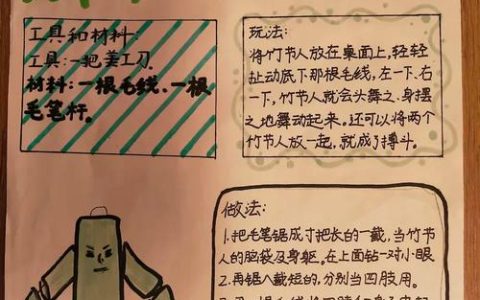 工具和材料:
工具:一把美工刀
材料:一根毛线、一根
毛笔杆.
玩法:
将竹节人放在桌面上,轻轻
扯动底下那根毛线,左一下、右
一下,竹节人就会头舞之、身摆
之地舞动起来。还可以将两个
竹节人放一起,就成了搏斗。
做法:
1.把毛笔锯成寸把长的一截,当竹节
人的脑袋及身躯,在上面钻一对小眼
2.再锯八截短的,分别当四肢用。